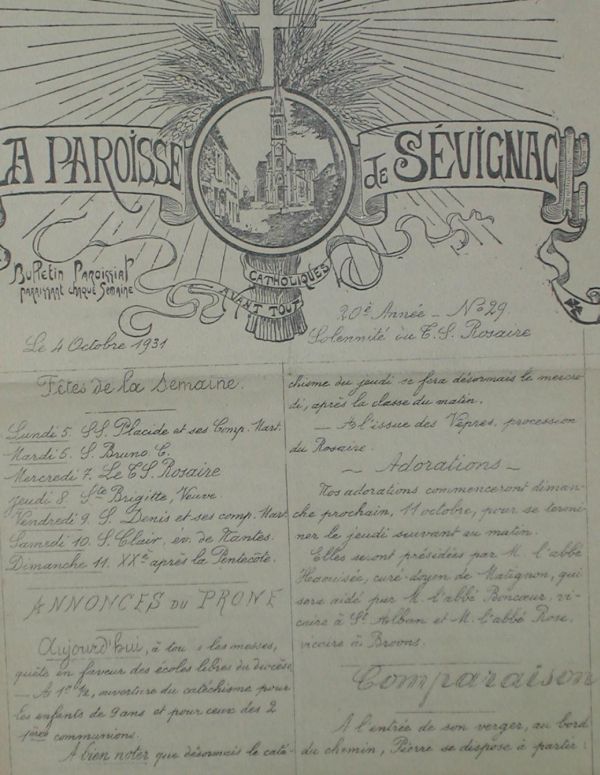 LA PAROISSE de SÉVIGNAC
Bulletin Paroissial
paraissant chaque semaine
CATHOLIQUES
AVANT TOUT
Le 4 Octobre 1931
20e Année - No 29
Solennité du T. S. Rosaire
Fêtes de la Semaine.
Lundi 5. SS. Placide et ses Comp. Mart.
Mardi 6. S. Bruno. C.
Mercredi 7. Le T.S. Rosaire
Jeudi 8. Ste Brigitte, Veuve.
Vendredi 9. S. Denis et ses comp. Mart.
Samedi 10. S. Clair, év. de Nantes.
Dimanche 11. XXe après la Pentecôte.
ANNONCES DU PRONE
Aujourd'hui, à tou s les messes,
quête en faveur des écoles libres du diocèse
- A 1h 1/2, ouverture du catéchisme pour
les enfants de 9 ans et pour ceux des 2
1ères communions.
A bien noter que désormais le caté-
chisme du jeudi se fera désormais le mercre-
di, après la classe du matin.
- A l'issue des Vêpres, procession
du Rosaire.
- Adorations -
Nos adorations commenceront diman-
che prochain, 11 octobre, pour se termi-
ner le jeudi seuvant au matin.
Elles seront présidées par M. l'abbé
curé-doyen de Matignon, qui
sera aidé par M. l'abbé Boncœur, vi-
caire à St Alban et M. l'abbé Rose,
vicaire à Broons.
Comparaison
A l'entrée de son verger, au bord
du chemin, Pierre se dispose à partir: